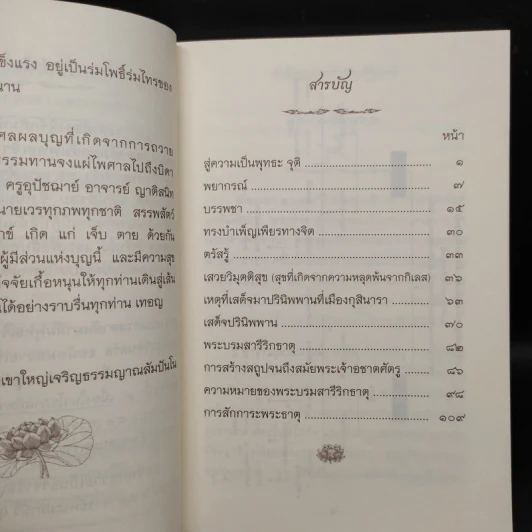 ข็งแรง อยู่เป็นร่มโพธิ์ร่มไทรของ
นาน
ศลผลบุญที่เกิดจากการถวาย
รรมทานจงแผ่ไพศาลไปถึงบิดา
ครูอุปัชฌาย์ อาจารย์ ญาติสนิท
นายเวรทุกภพทุกชาติ สรรพสัตว์
กข์ เกิด แก่ เจ็บ ตาย ด้วยกัน
ผู้มีส่วนแห่งบุญนี้ และมีความสุข
จจัยเกื้อหนุนให้ทุกท่านเดินสู่เส้น
นได้อย่างราบรื่นทุกท่าน เทอญ
เขาใหญ่เจริญธรรมญาณสัมปันโน
สารบัญ
หน้า
สู่ความเป็นพุทธะ จุติ ๑
พยากรณ์ ๗
บรรพชา ๑๕
ทรงบำเพ็ญเพียรทางจิต ๓๐
ตรัสรู้ ๓๓
เสวยวิมุตติสุข (สุขที่เกิดจากความหลุดพ้นจากกิเลส) ๓๖
เหตุที่เสด็จมาปรินิพพานที่เมืองกุสินารา ๖๓
เสด็จปรินิพพาน ๗๐
พระบรมสารีริกธาตุ ๘๒
การสร้างสถูปจนถึงสมัยพระเจ้าอชาตศัตรู ๘๖
ความหมายของพระบรมสารีริกธาตุ ๙๘
การสักการะพระธาตุ ๑๐๙